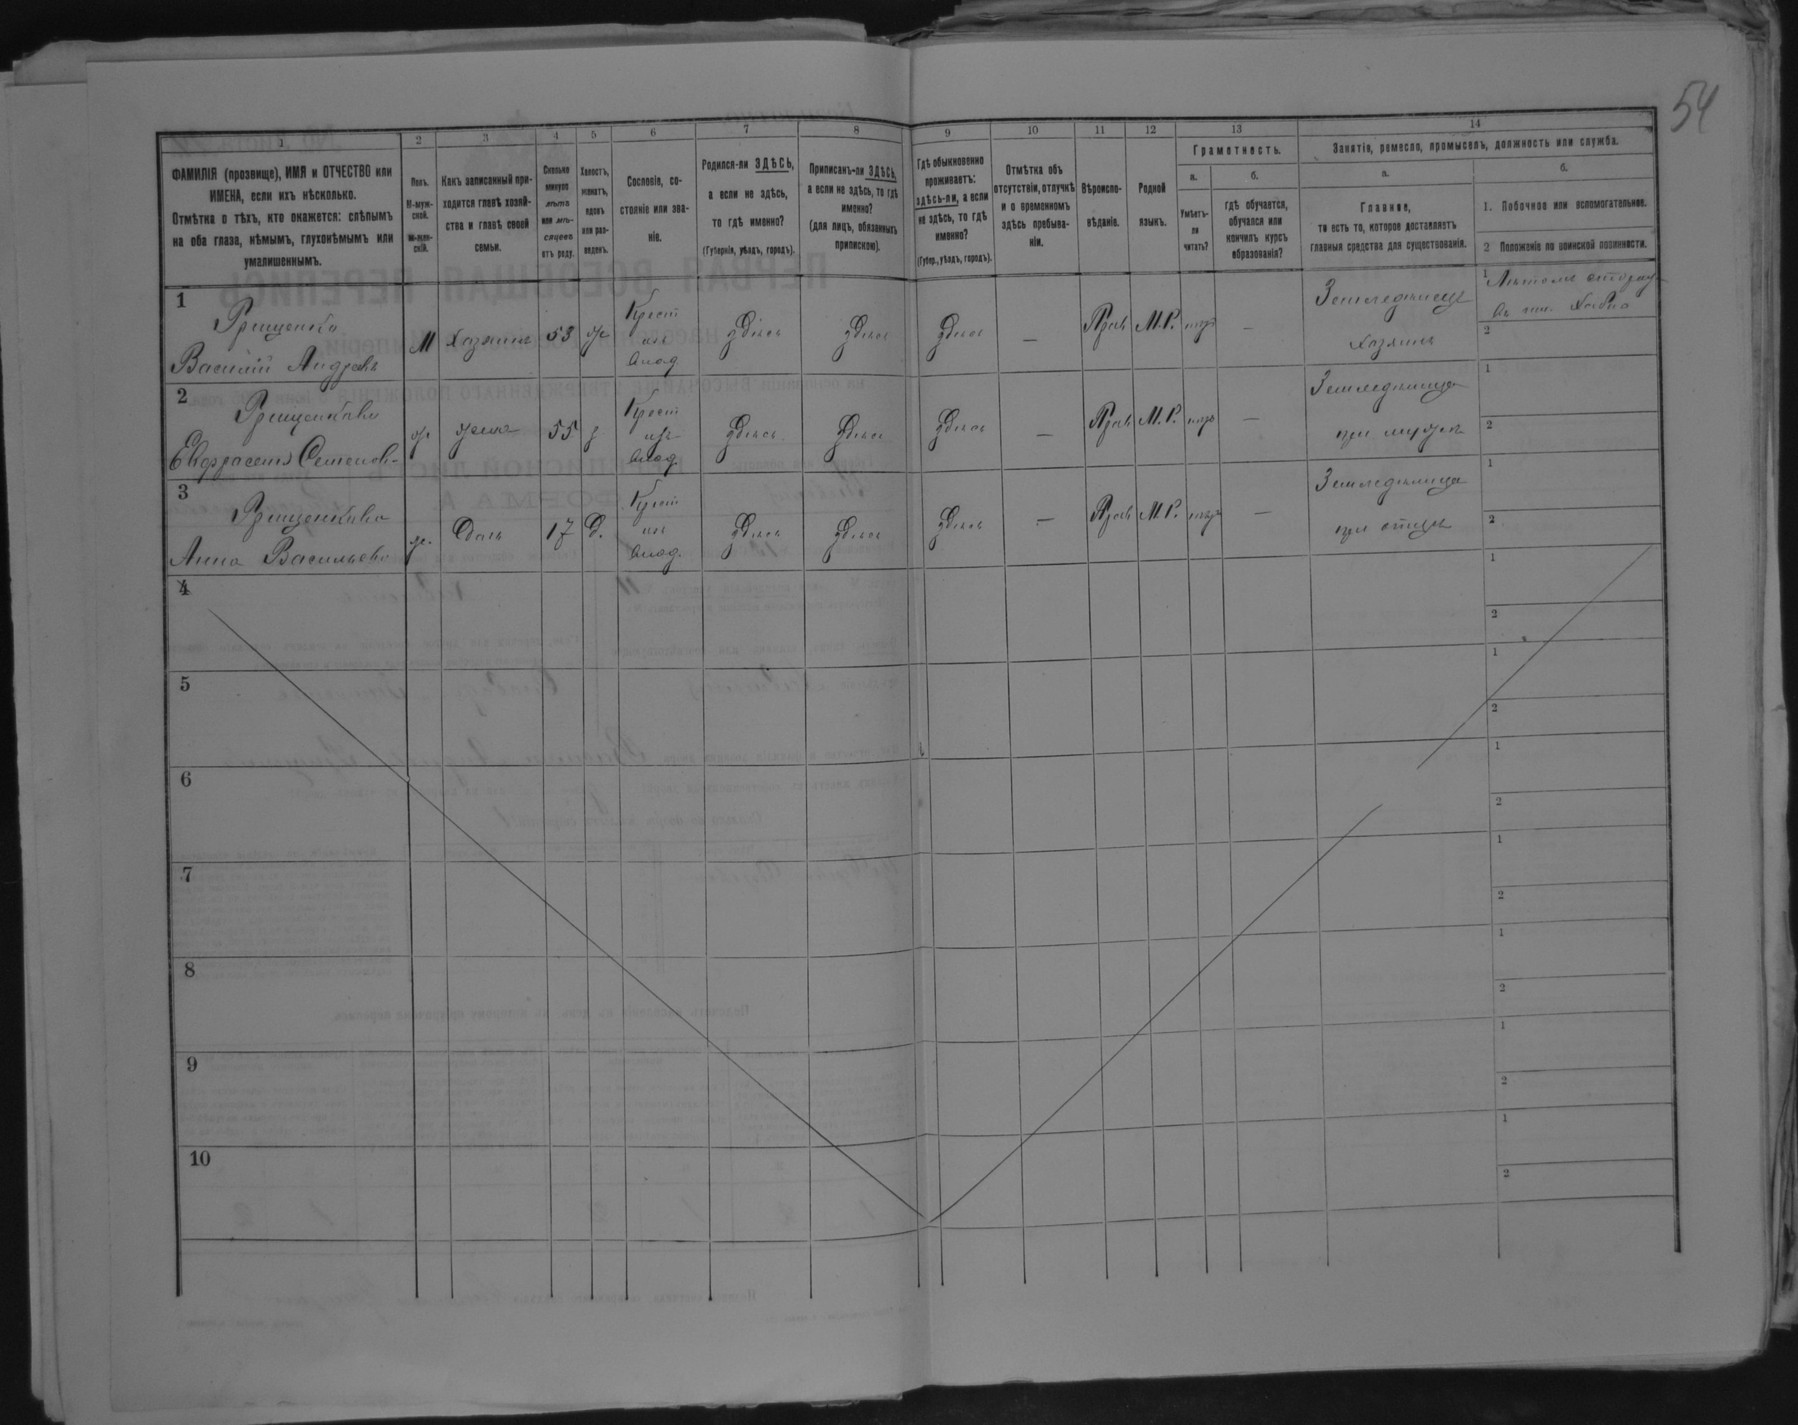 54
1 2 3 4 5 6 7 8 9 10 11 12 13 14
ФАМИЛІЯ (прозвище), ИМЯ и ОТЧЕСТВО или
ИМЕНА, если ихъ нѣсколько.
Отмѣтка о тѣхъ, кто окажется: слѣпымъ
на оба глаза, нѣмымъ, глухонѣмымъ или
умалишеннымъ.
Полъ.
М-муж-
ской.
Ж-жен-
скій.
Какъ записанный при-
ходится главѣ хозяй-
ства и главѣ своей
семьи.
Сколько
минуло
лѣтъ
или мѣ-
сяцевъ
отъ роду.
Холостъ,
женатъ,
вдовъ
или раз-
веденъ.
Сословіе, со-
стояніе или зва-
ніе.
Родился-ли ЗДѢСЬ,
а если не здѣсь,
то гдѣ именно?
(Губернія, уѣздъ, городъ).
Приписанъ-ли ЗДѢСЬ,
а если не здѣсь, то гдѣ
именно?
(для лицъ, обязанныхъ
припискою).
Гдѣ обыкновенно
проживаетъ:
здѣсь-ли, а если
не здѣсь, то гдѣ
именно?
(Губер., уѣздъ, городъ).
Отмѣтка объ
отсутствіи, отлучкѣ
и о временномъ
здѣсь пребыва-
ніи.
Вѣроиспо-
вѣданіе.
Родной
языкъ.
Грамотность.
а.
Умѣетъ-
ли
читать?
б.
Гдѣ обучается,
обучался или
кончилъ курсъ
образованія?
Занятіе, ремесло, промыселъ, должность или служба.
а.
Главное,
то есть то, которое доставляетъ
главныя средства для существованія.
б.
1. Побочное или вспомогательное.
2 Положеніе по воинской повинности.
1
Василій Андреевъ
М
Хозяинъ
53
ж
Крест
изъ
влад.
Здѣсь
Здѣсь
Здѣсь
—
Прав
М.Р.
—
Земледѣлецъ
хозяинъ
1
2
2
Семенов
ж
жена
55
з
Крест
изъ
влад.
Здѣсь
Здѣсь
Здѣсь
—
Прав
М.Р.
—
Земледѣлица
при мужѣ
1
2
3
Анна Васильева
ж.
Дочь
17
д.
Крест
изъ
влад.
Здѣсь
Здѣсь
Здѣсь
—
Прав
М.Р.
—
Земледѣлица
при отцѣ
1
2
4
1
2
5
1
2
6
1
2
7
1
2
8
1
2
9
1
2
10
1
2